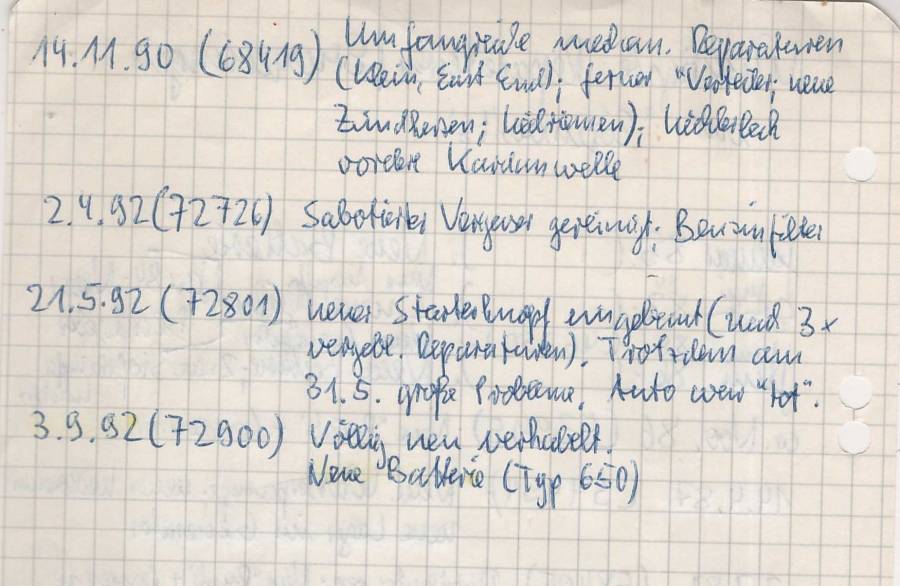 14.11.90 (68419) Umfangreiche mechan. Reparaturen
(Klein, East End); ferner Verteiler; neue
Zündkerzen; Keilriemen);
vordere
2.4.92 (72726) Vergaser gereinigt; Benzinfilter
21.5.92 (72801) neuer Starterknopf eingebaut (und 3x
vergebl. Reparaturen). Trotzdem am
31.5. große Probleme, Auto war "tot".
3.9.92 (72900) Völlig neu verkabelt.
Neue Batterie (Typ 650)